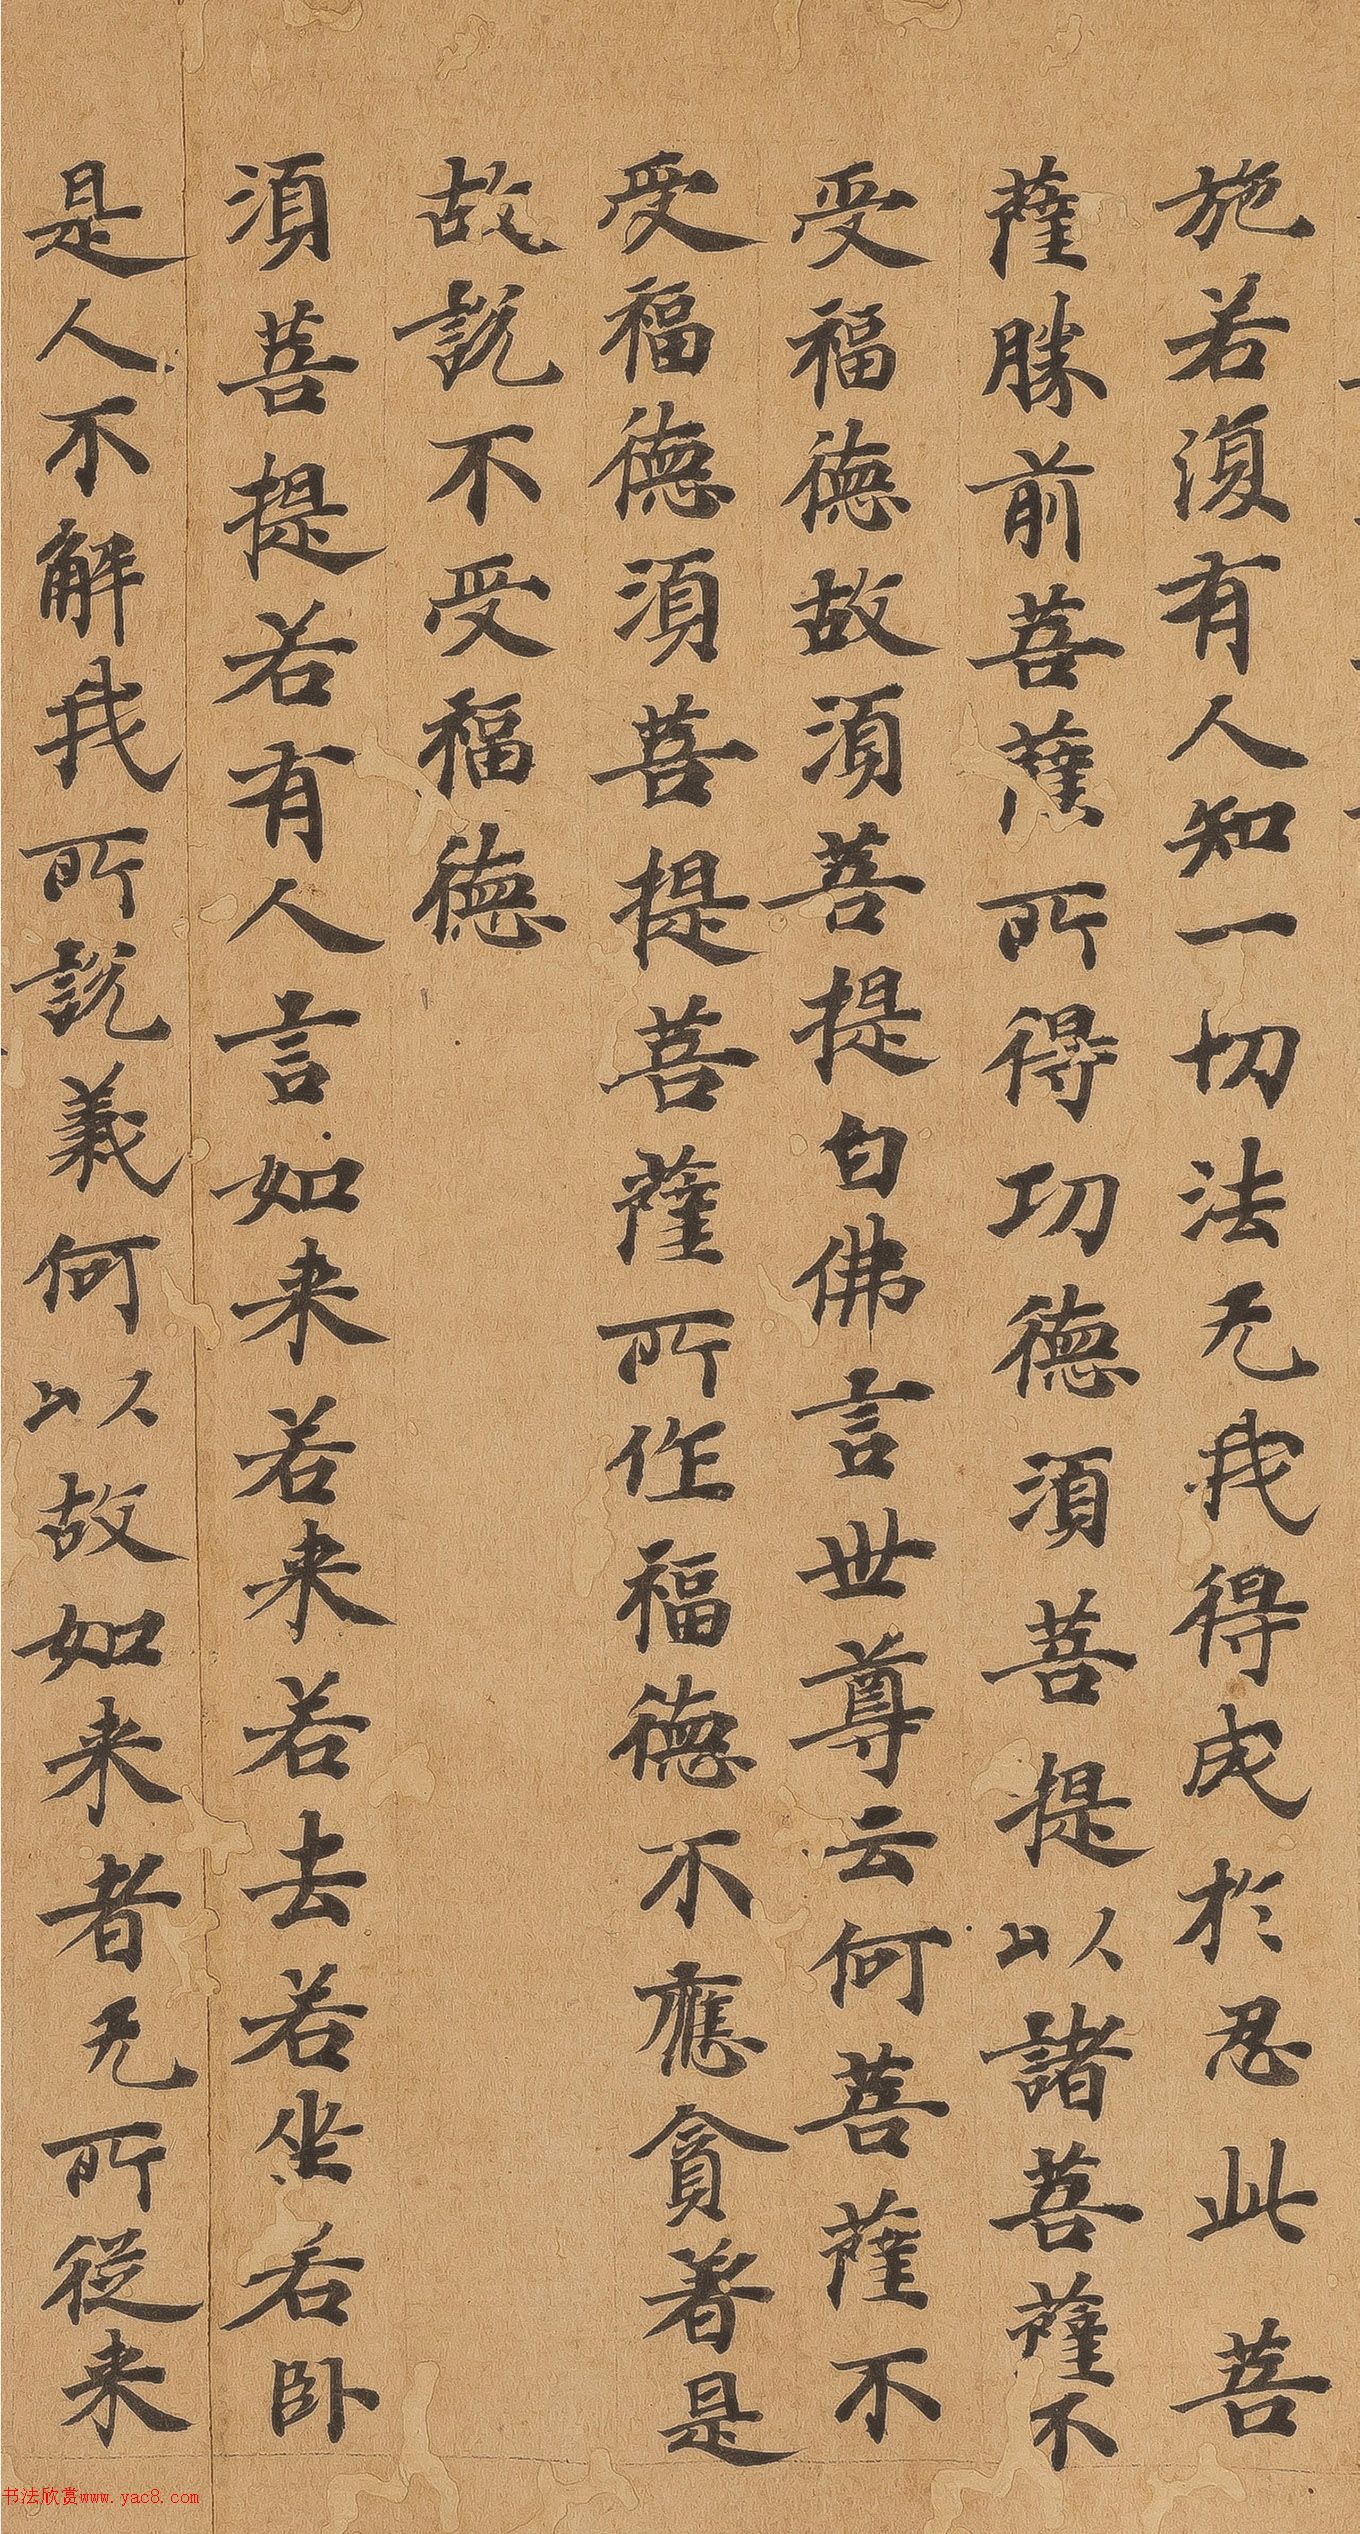 施若復有人知一切法无我得成於忍此菩
薩勝前菩薩所得功德須菩提以諸菩薩不
受福德故須菩提白佛言世尊云何菩薩不
受福德須菩提菩薩所作福德不應貪著是
故說不受福德
須菩提若有人言如来若来若去若坐若卧
是人不解我所說義何以故如来者无所從来
书法欣赏www.yac8.com